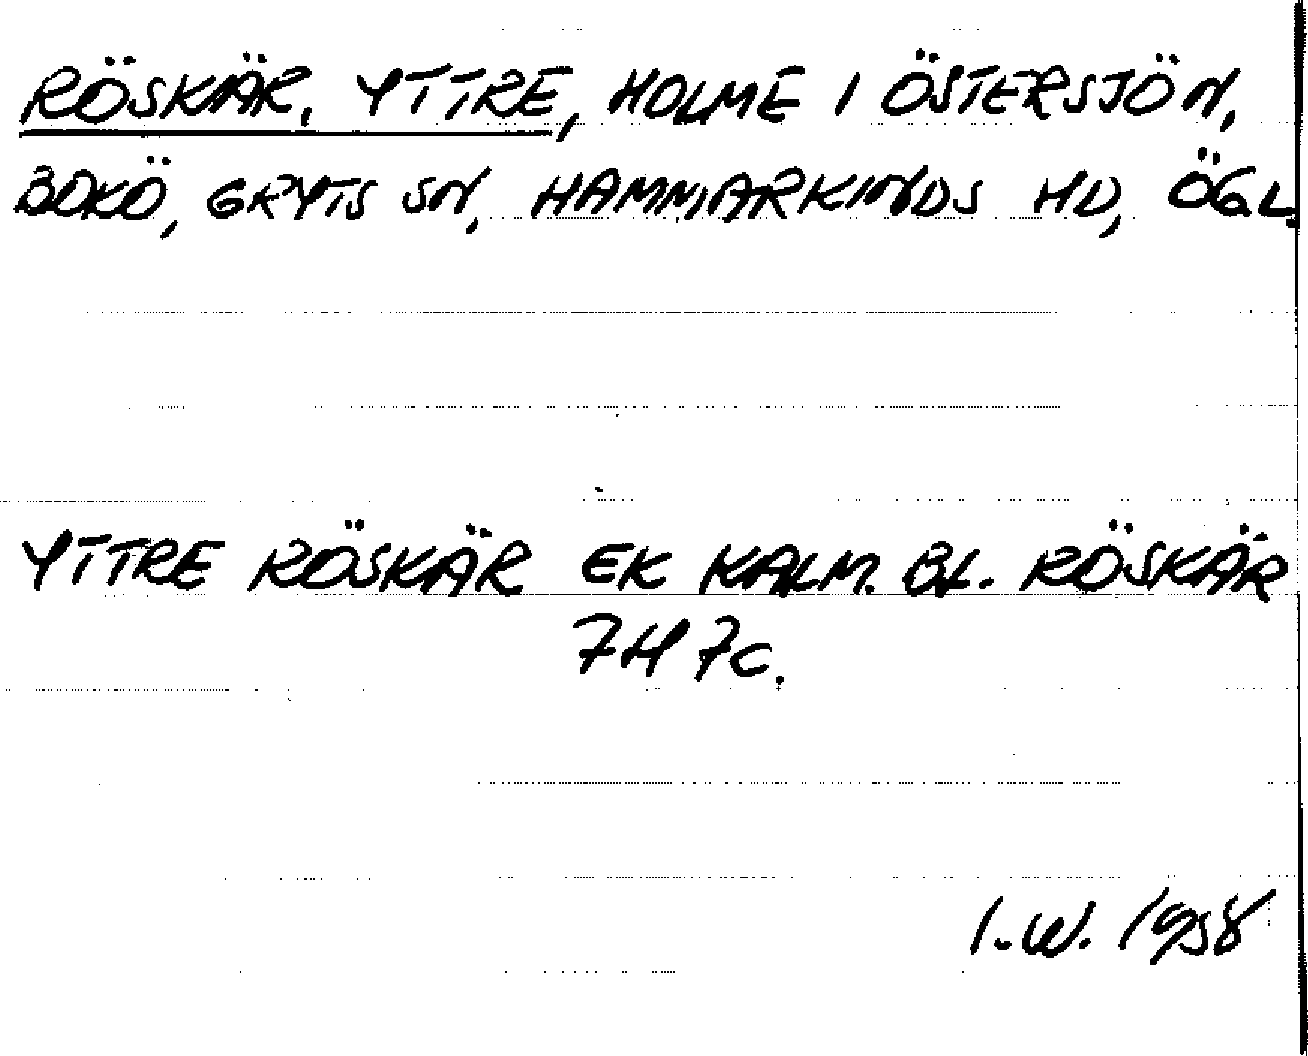 RÖSKÄR, YTTRE, HOLME I ÖSTERSJÖN,
BOKÖ, GRYTS SN, HAMMARKINDS HD, ÖGL.
YTTRE RÖSKÄR EK KALM. BL. RÖSKÄR
7H 7C.
I.W. 1958